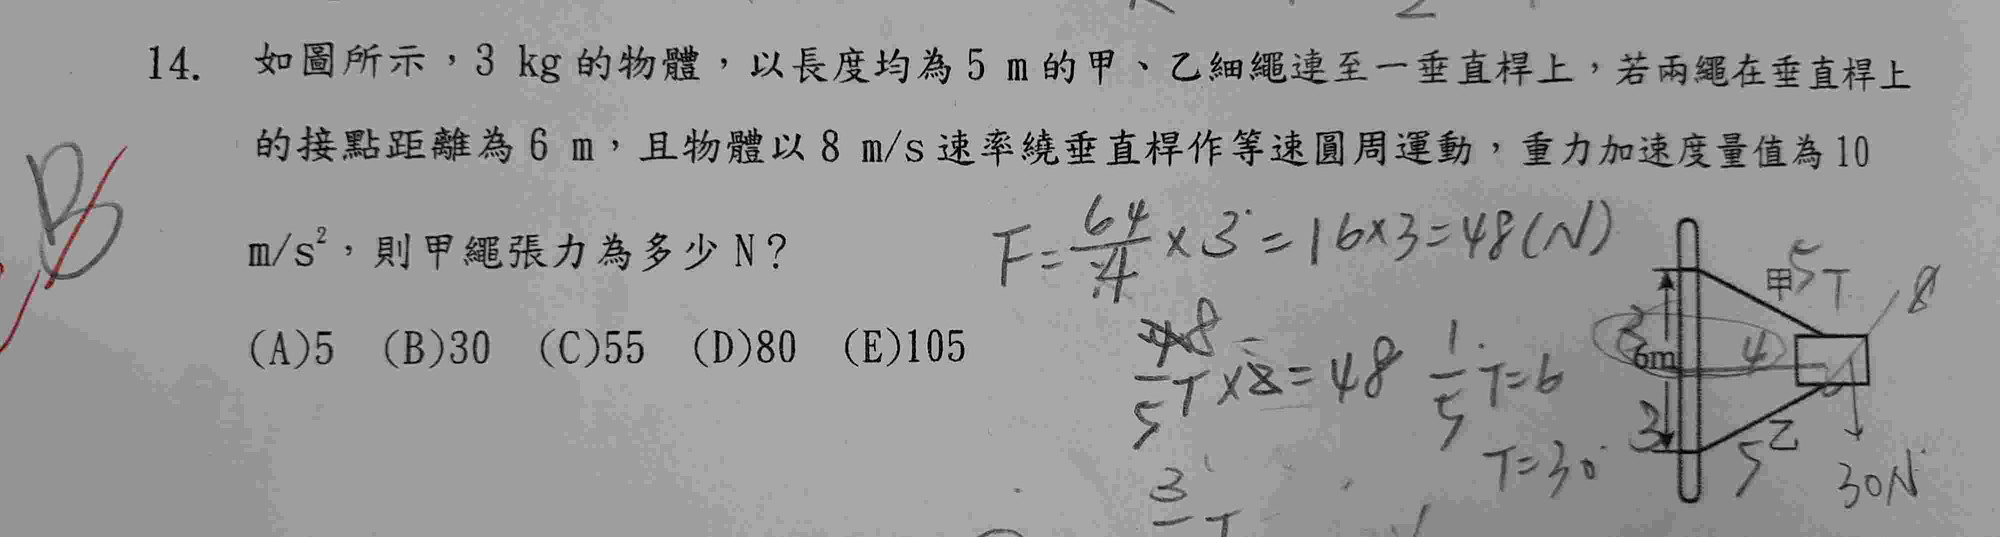 14. 如圖所示，3 kg的物體，以長度均為5 m的甲、乙細繩連至一垂直桿上，若兩繩在垂直桿上
的接點距離為6 m，且物體以8 m/s速率繞垂直桿作等速圓周運動，重力加速度量值為10
m/s²，則甲繩張力為多少N？
(A)5 (B)30 (C)55 (D)80 (E)105
B
F=64/4×3=16×3=48(N)
8/5T=48
1/5T=6
T=30
3/T
甲5T
8
3
6m
4
3
5乙
30N